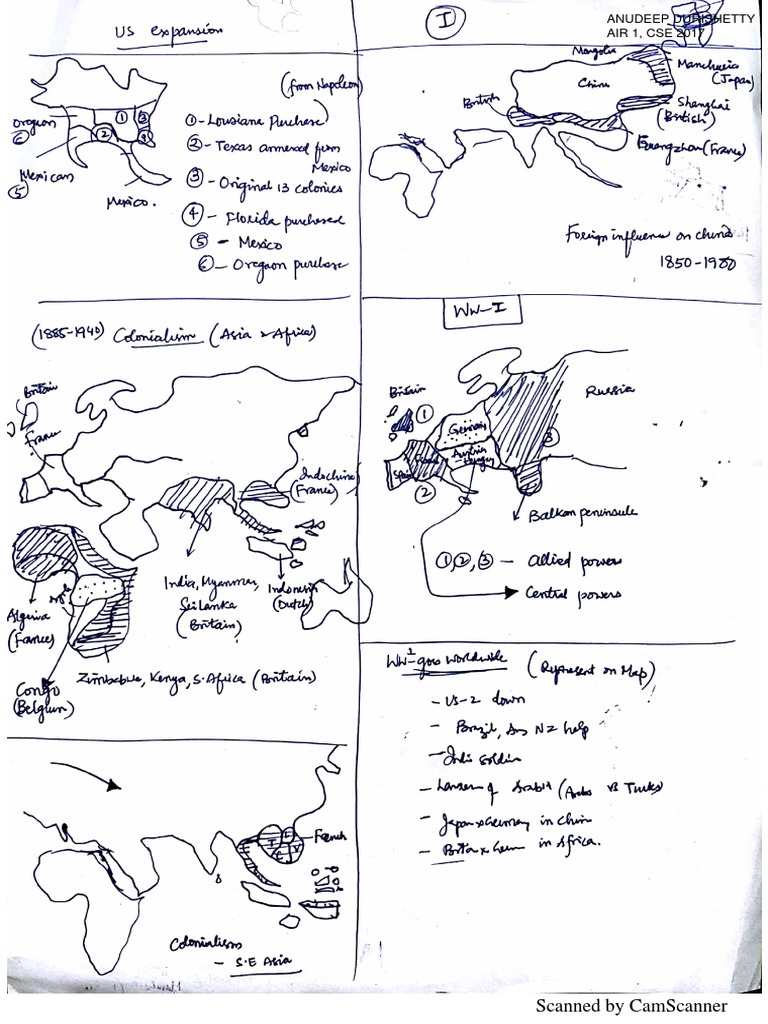 US expansion
I
ANUDEEP DURISHETTY
AIR 1, CSE 2017
(from Napoleon)
Oregeon
⑥
Mexicans
⑤
Mexico.
① ② ③ ④
① - Lousiana Purchase
② - Texas annexed from
Mexico
③ - Original 13 colonies
④ - Florida purchased
⑤ - Mexico
⑥ - Oregaon purchase
Mongolia
Manchuria
(Japan)
China
British
Shanghai
(British)
Guangzhou (France)
Foreign influence on China
1850-1980
(1885-1940) Colonialism (Asia & Africa)
Britain
France
Indochina
(France)
India, Myanmar,
Sri Lanka
(Britain)
Indonesia
(Dutch)
Algeria
(France)
Congo
(Belgium)
Zimbabwe, Kenya, S. Africa (Britain)
WW-I
Britain ①
Russia
Germany
Austria
Hungary
France
Spain
②
③
Balkan peninsule
①,②,③ - Allied powers
Central powers
WW1 goes worldwide (Represent on Map)
- US-2 down
- Brazil, Aus NZ help
- India soldier
- Lawrence of Arabia (Arabs vs Turks)
- Japan x Germany in China
- Brita x Germ in Africa.
French
Colonialism
- S.E Asia
Scanned by CamScanner